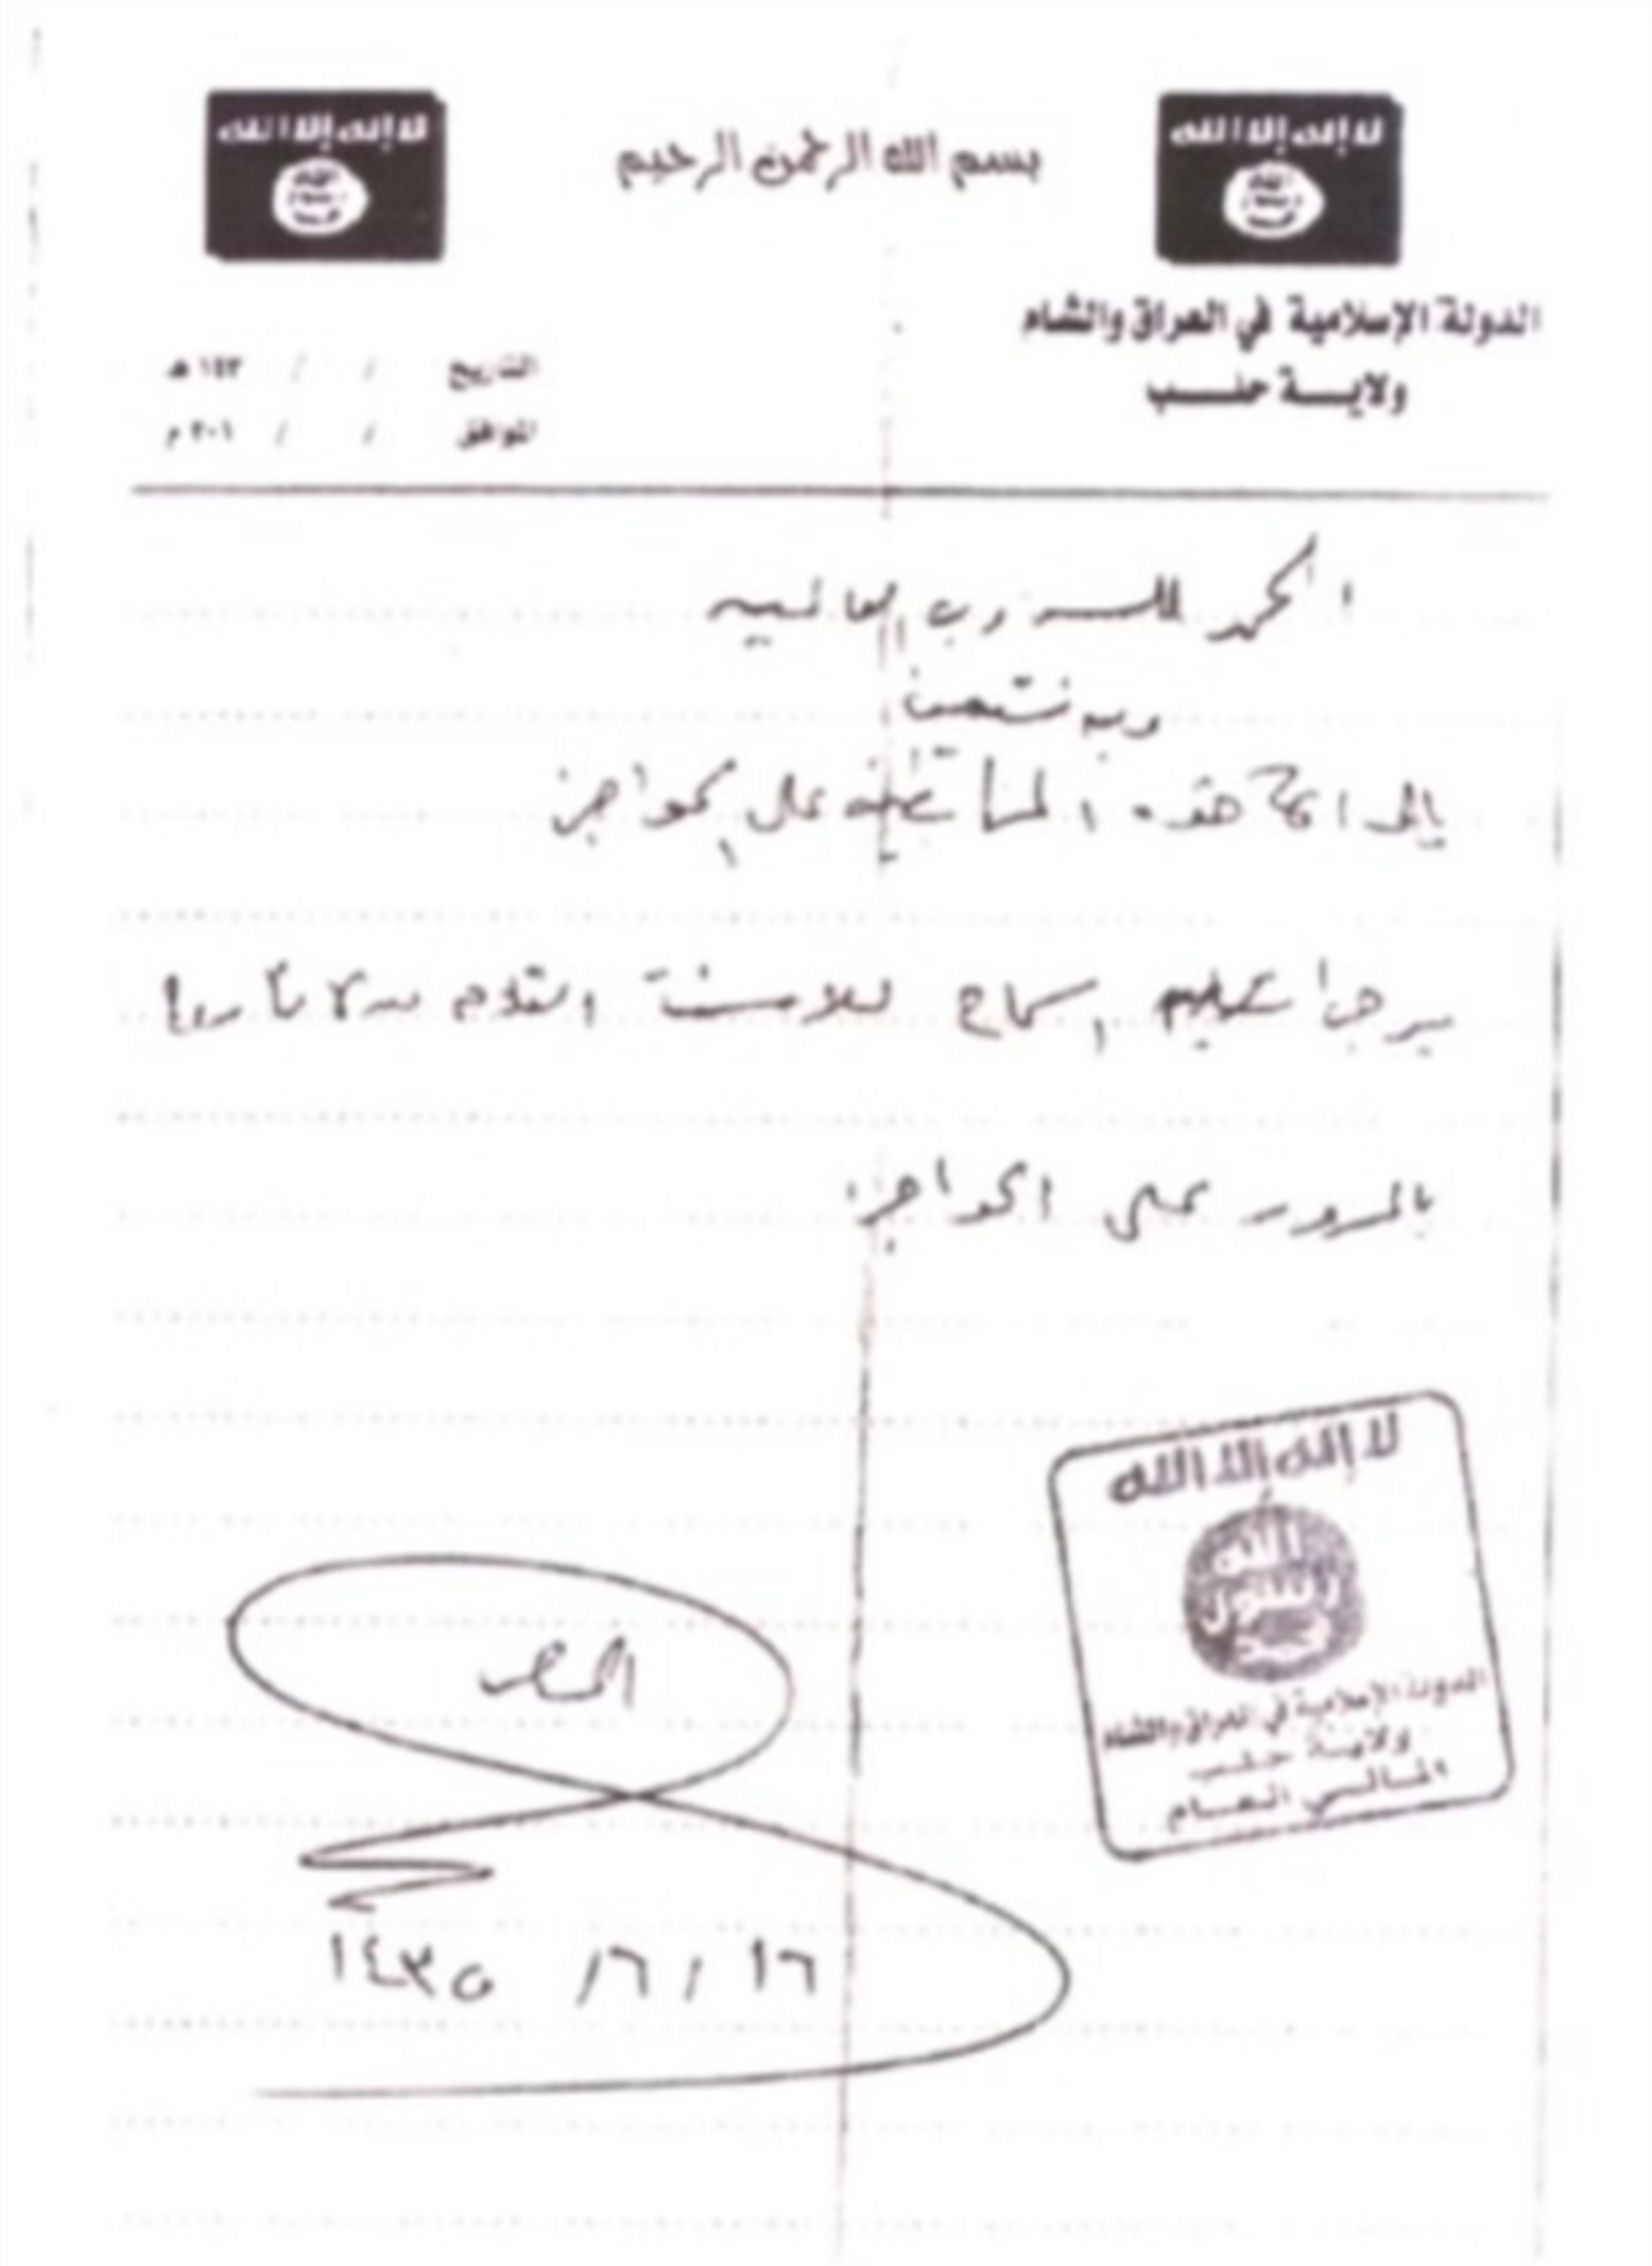 لا إله إلا الله
الله
رسول
محمد
بسم الله الرحمن الرحيم
لا إله إلا الله
الله
رسول
محمد
الدولة الإسلامية في العراق والشام
ولاية حلب
التاريخ / / ١٤٣ هـ
الموافق / / ٢٠١ م
الحمد لله رب العالمين
وبه نستعين
إلى هذه على الحواجز
يرجا عليكم السماح للاسمنت القادم من
بالمرور على الحواجز
لا إله إلا الله
الله
رسول
محمد
الدولة الإسلامية في العراق والشام
ولاية حلب
المالي العام
١٦ / ٦ / ١٤٣٥